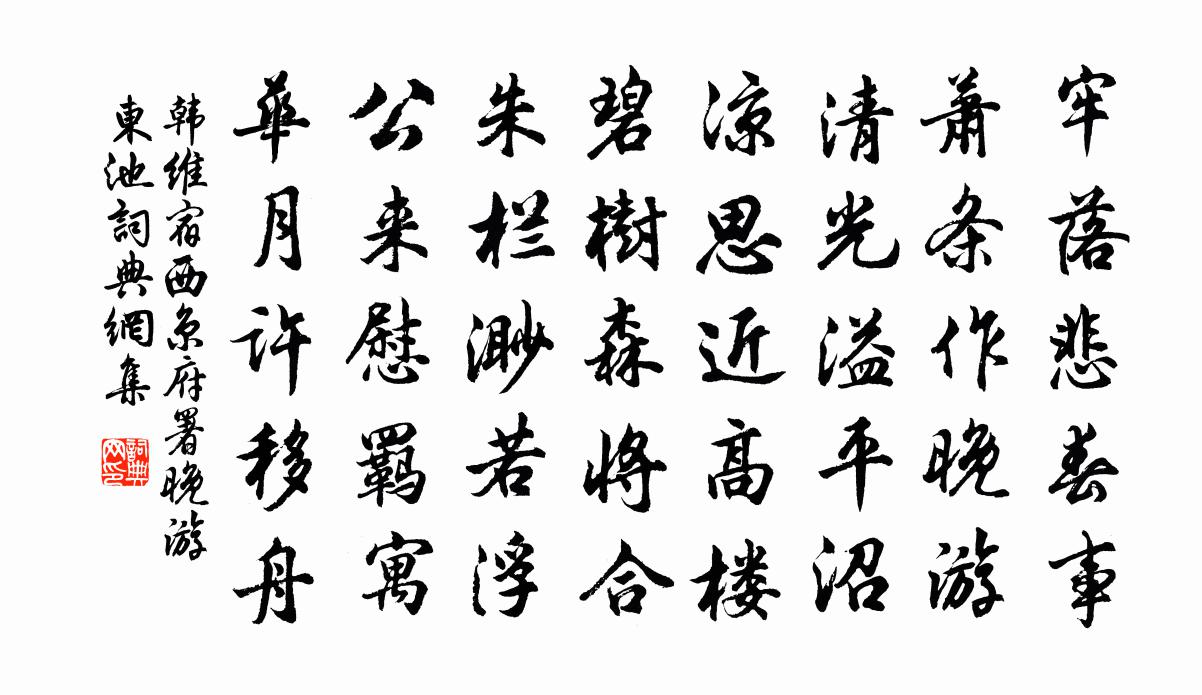 牢落悲春事
萧条作晚游
清光溢平沼
凉思近高楼
碧樹森将合
朱栏渺若浮
公来慰羁寓
華月许移舟
韩维宿西京府署晚游
東池詞典網集
詞典网印